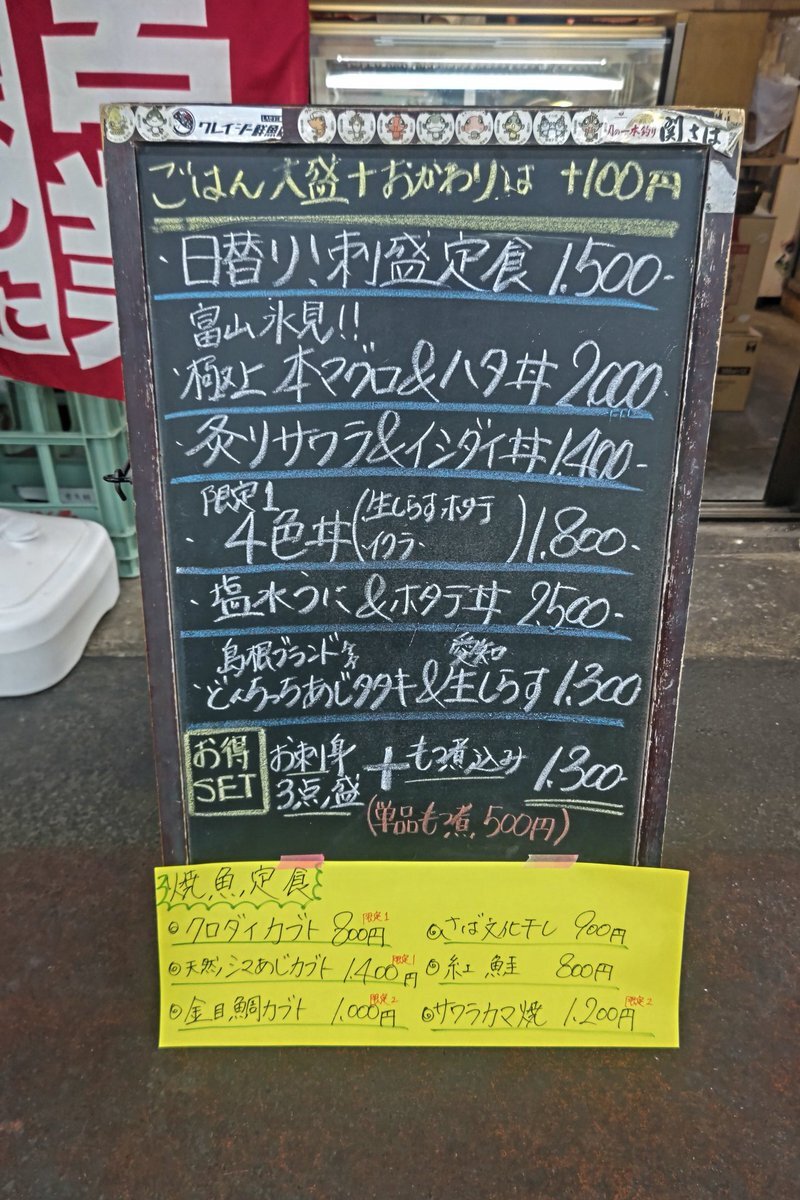 クレイジー鮮魚
関さば
ごはん大盛+おかわりは +100円
・日替り!刺盛定食 1.500-
富山 氷見!!
・極上 本マグロ&ハタ丼 2000
・炙りサワラ&イシダイ丼 1.400-
限定1
・4色丼(生しらす ホタテ イクラ・ ) 1.800-
・塩水うに&ホタテ丼 2500-
島根ブランド 愛知
・どんちっちあじタタキ&生しらす 1.300
お得SET お刺身3点盛 + もつ煮込み 1.300-
(単品もつ煮 500円)
焼魚定食
◎クロダイカブト 800円 限定1
◎天然シマあじカブト 1.400円 限定1
◎金目鯛カブト 1.000円 限定2
◎さば文化干し 900円
◎紅鮭 800円
◎サワラカマ焼 1.200円 限定2